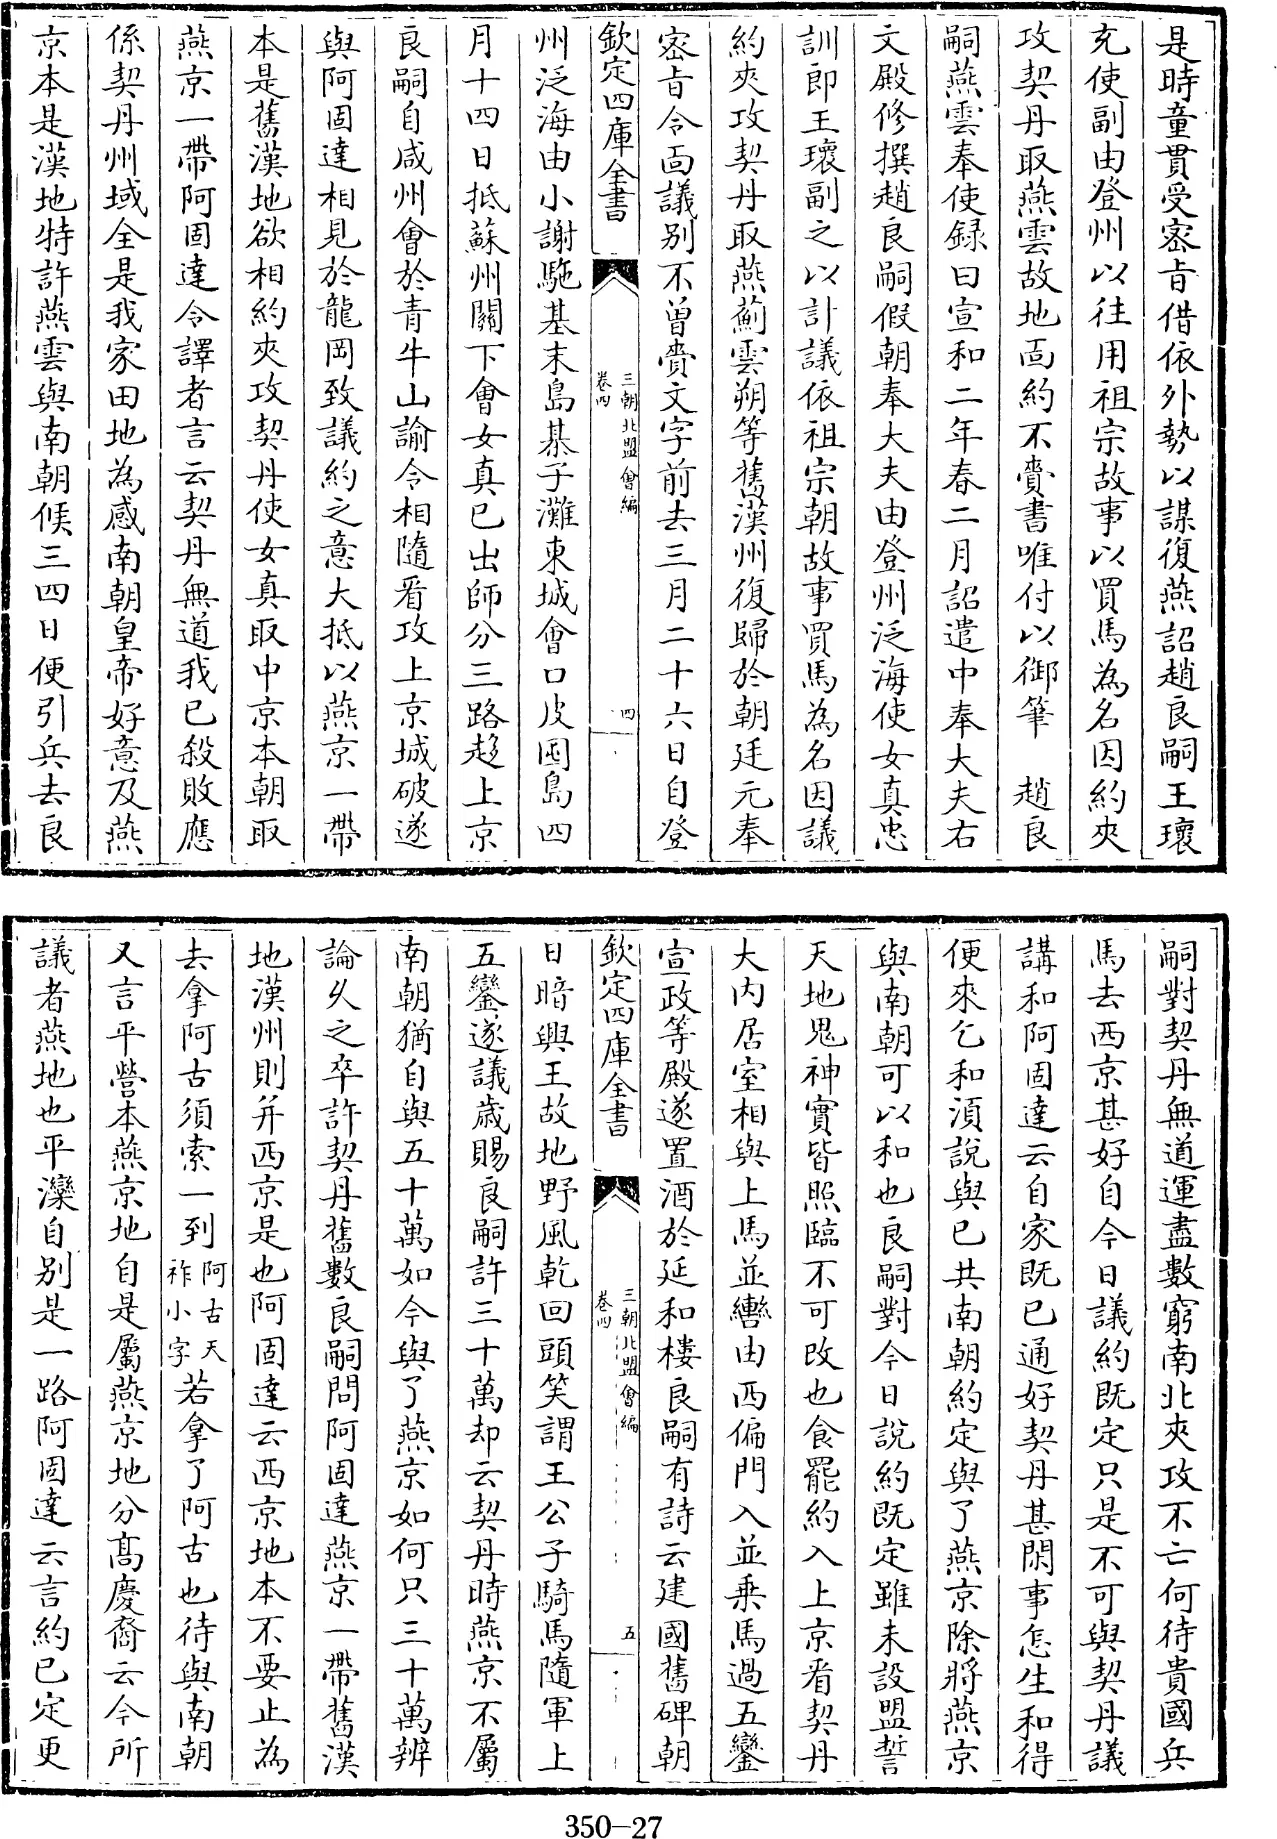 是時童貫受宻㫖借依外勢以謀復燕詔趙良嗣王瓌
充使副由登州以往用祖宗故事以買馬為名因約夾
攻契丹取燕雲故地面約不賫書唯付以御筆　趙良
嗣燕雲奉使録曰宣和二年春二月詔遣中奉大夫右
文殿修撰趙良嗣假朝奉大夫由登州泛海使女真忠
訓郎王瓌副之以計議依祖宗朝故事買馬為名因議
約夾攻契丹取燕薊雲朔等舊漢州復歸於朝廷元奉
宻㫖令面議别不曾賫文字前去三月二十六日自登
欽定四庫全書　三朝北盟會編　卷四　四
州泛海由小謝駞基末島棊子灘東城會口皮囤島四
月十四日抵蘇州關下會女真已出師分三路趍上京
良嗣自咸州會於青牛山諭令相隨看攻上京城破遂
與阿固達相見於龍岡致議約之意大抵以燕京一帶
本是舊漢地欲相約夾攻契丹使女真取中京本朝取
燕京一帶阿固達令譯者言云契丹無道我已殺敗應
係契丹州域全是我家田地為感南朝皇帝好意及燕
京本是漢地特許燕雲與南朝候三四日便引兵去良
嗣對契丹無道運盡數窮南北夾攻不亡何待貴國兵
馬去西京甚好自今日議約既定只是不可與契丹議
講和阿固達云自家既已通好契丹甚閑事怎生和得
便來乞和湏說與已共南朝約定與了燕京除將燕京
與南朝可以和也良嗣對今日說約既定雖未設盟誓
天地鬼神實皆照臨不可改也食罷約入上京看契丹
大内居室相與上馬並轡由西偏門入並乗馬過五鑾
宣政等殿遂置酒於延和樓良嗣有詩云建國舊碑朝
欽定四庫全書　三朝北盟會編　卷四　五
日暗興王故地野風乾回頭笑謂王公子騎馬隨軍上
五鑾遂議歳賜良嗣許三十萬却云契丹時燕京不屬
南朝猶自與五十萬如今與了燕京如何只三十萬辨
論乆之卒許契丹舊數良嗣問阿固達燕京一帶舊漢
地漢州則并西京是也阿固達云西京地本不要止為
去拿阿古須索一到阿古天祚小字若拿了阿古也待與南朝
又言平營本燕京地自是屬燕京地分髙慶裔云今所
議者燕地也平灤自别是一路阿固達云言約已定更
350-27